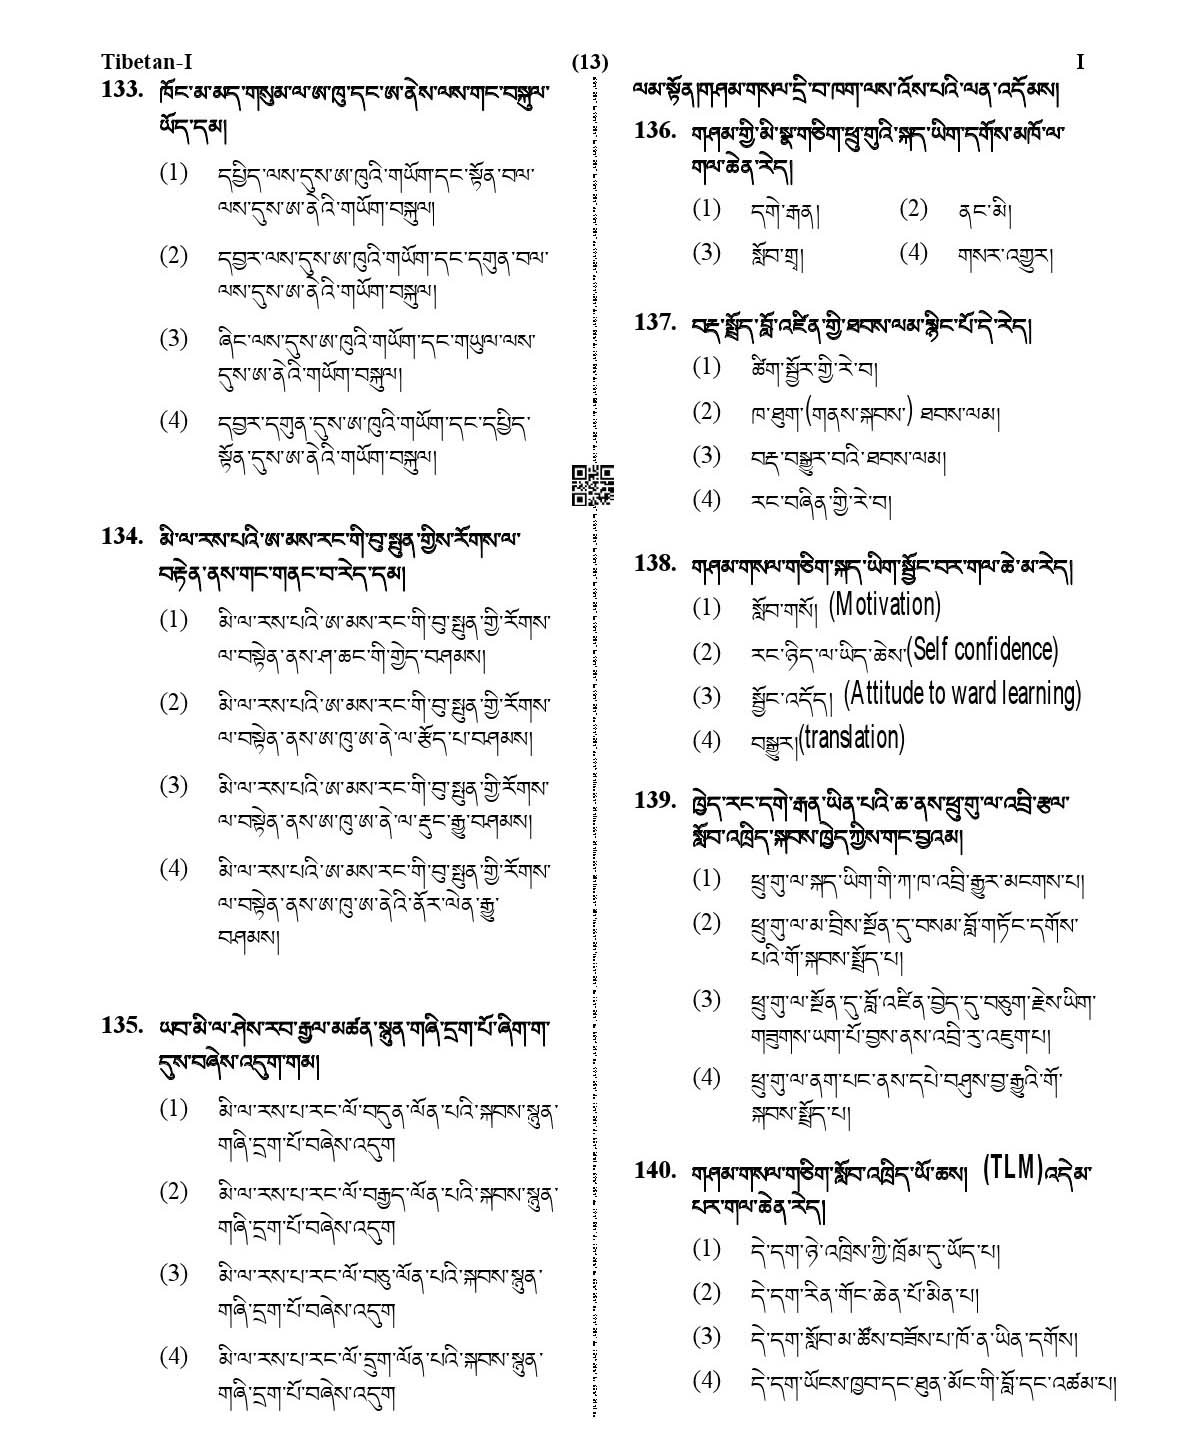 Tibetan-I (13) I
133. ཁོང་མ་མད་གསུམ་ལ་ཨ་ཁུ་དང་ཨ་ནེས་ལས་གང་བསྐུལ་
ཡོད་དམ།
(1) དཔྱིད་ལས་དུས་ཨ་ཁུའི་གཡོག་དང་སྟོན་བལ་
ལས་དུས་ཨ་ནེའི་གཡོག་བསྐུལ།
(2) དབྱར་ལས་དུས་ཨ་ཁུའི་གཡོག་དང་དགུན་བལ་
ལས་དུས་ཨ་ནེའི་གཡོག་བསྐུལ།
(3) ཞིང་ལས་དུས་ཨ་ཁུའི་གཡོག་དང་གཡུལ་ལས་
དུས་ཨ་ནེའི་གཡོག་བསྐུལ།
(4) དབྱར་དགུན་དུས་ཨ་ཁུའི་གཡོག་དང་དཔྱིད་
སྟོན་དུས་ཨ་ནེའི་གཡོག་བསྐུལ།
134. མི་ལ་རས་པའི་ཨ་མས་རང་གི་བུ་སྤུན་གྱིས་རོགས་ལ་
བརྟེན་ནས་གང་གནང་བ་རེད་དམ།
(1) མི་ལ་རས་པའི་ཨ་མས་རང་གི་བུ་སྤུན་གྱི་རོགས་
ལ་བསྟེན་ནས་ཤ་ཆང་གི་གྱེད་བཤམས།
(2) མི་ལ་རས་པའི་ཨ་མས་རང་གི་བུ་སྤུན་གྱི་རོགས་
ལ་བསྟེན་ནས་ཨ་ཁུ་ཨ་ནེ་ལ་རྩོད་པ་བཤམས།
(3) མི་ལ་རས་པའི་ཨ་མས་རང་གི་བུ་སྤུན་གྱི་རོགས་
ལ་བསྟེན་ནས་ཨ་ཁུ་ཨ་ནེ་ལ་རྡུང་རྒྱུ་བཤམས།
(4) མི་ལ་རས་པའི་ཨ་མས་རང་གི་བུ་སྤུན་གྱི་རོགས་
ལ་བསྟེན་ནས་ཨ་ཁུ་ཨ་ནེའི་ནོར་ལེན་རྒྱུ་
བཤམས།
135. ཡབ་མི་ལ་ཤེས་རབ་རྒྱལ་མཚན་སྙུན་གཞི་དྲག་པོ་ཞིག་ག་
དུས་བཞེས་འདུག་གམ།
(1) མི་ལ་རས་པ་རང་ལོ་བདུན་ལོན་པའི་སྐབས་སྙུན་
གཞི་དྲག་པོ་བཞེས་འདུག
(2) མི་ལ་རས་པ་རང་ལོ་བརྒྱད་ལོན་པའི་སྐབས་སྙུན་
གཞི་དྲག་པོ་བཞེས་འདུག
(3) མི་ལ་རས་པ་རང་ལོ་བཅུ་ལོན་པའི་སྐབས་སྙུན་
གཞི་དྲག་པོ་བཞེས་འདུག
(4) མི་ལ་རས་པ་རང་ལོ་དྲུག་ལོན་པའི་སྐབས་སྙུན་
གཞི་དྲག་པོ་བཞེས་འདུག
ལམ་སྟོན།གཤམ་གསལ་དྲི་བ་ཁག་ལས་འོས་པའི་ལན་འདོམས།
136. གཤམ་གྱི་མི་སྣ་གཅིག་ཕྲུ་གུའི་སྐད་ཡིག་དགོས་མཁོ་ལ་
གལ་ཆེན་རེད།
(1) དགེ་རྒན། (2) ནང་མི།
(3) སློབ་གྲྭ། (4) གསར་འགྱུར།
137. བརྡ་སྤྲོད་བློ་འཛིན་གྱི་ཐབས་ལམ་སྙིང་པོ་དེ་རེད།
(1) ཚིག་སྦྱོར་གྱི་རེ་བ།
(2) ཁ་ཐུག་(གནས་སྐབས་) ཐབས་ལམ།
(3) བརྡ་བསྒྱུར་བའི་ཐབས་ལམ།
(4) རང་བཞིན་གྱི་རེ་བ།
138. གཤམ་གསལ་གཅིག་སྐད་ཡིག་སྦྱོང་བར་གལ་ཆེ་མ་རེད།
(1) སློབ་གསོ། (Motivation)
(2) རང་ཉིད་ལ་ཡིད་ཆེས་(Self confidence)
(3) སྦྱོང་འདོད། (Attitude to ward learning)
(4) བསྒྱུར།(translation)
139. ཁྱེད་རང་དགེ་རྒན་ཡིན་པའི་ཆ་ནས་ཕྲུ་གུ་ལ་འབྲི་རྩལ་
སློབ་འཁྲིད་སྐབས་ཁྱེད་ཀྱིས་གང་བྱའམ།
(1) ཕྲུ་གུ་ལ་སྐད་ཡིག་གི་ཀ་ཁ་འབྲི་རྒྱུར་མངགས་པ།
(2) ཕྲུ་གུ་ལ་མ་བྲིས་སྔོན་དུ་བསམ་བློ་གཏོང་དགོས་
པའི་གོ་སྐབས་སྤྲོད་པ།
(3) ཕྲུ་གུ་ལ་སྔོན་དུ་བློ་འཛིན་བྱེད་དུ་བཅུག་རྗེས་ཡིག་
གཟུགས་ཡག་པོ་བྱས་ནས་འབྲི་རུ་འཇུག་པ།
(4) ཕྲུ་གུ་ལ་ནག་པང་ནས་དཔེ་བཤུས་བྱ་རྒྱུའི་གོ་
སྐབས་སྤྲོད་པ།
140. གཤམ་གསལ་གཅིག་སློབ་འཁྲིད་ཡོ་ཆས། (TLM)འདེམ་
པར་གལ་ཆེན་རེད།
(1) དེ་དག་ཉེ་འཁྲིས་ཀྱི་ཁྲོམ་དུ་ཡོད་པ།
(2) དེ་དག་རིན་གོང་ཆེན་པོ་མིན་པ།
(3) དེ་དག་སློབ་མ་ཚོས་བཟོས་པ་ཁོ་ན་ཡིན་དགོས།
(4) དེ་དག་ཡོངས་ཁྱབ་དང་ཐུན་མོང་གི་བློ་དང་འཚམ་པ།